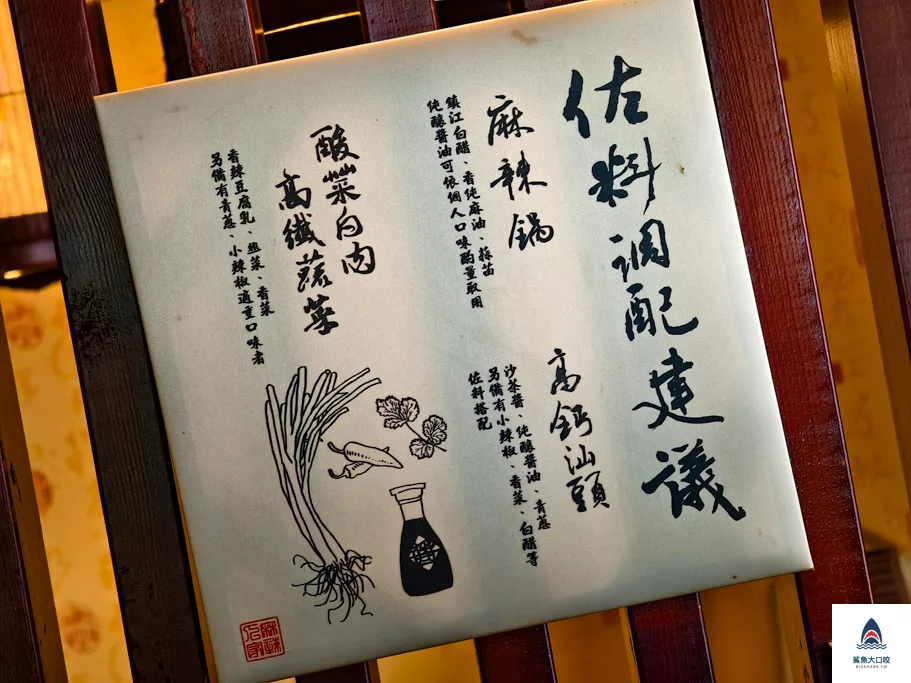 佐料調配建議
麻辣鍋
鎮江白醋、香純麻油、蒜苗
純釀醬油可依個人口味酌量取用
高鈣汕頭
沙茶醬、純釀醬油、青蔥
另備有小辣椒、香菜、白醋等
佐料搭配
酸菜白肉
高纖蔬菜
香辣豆腐乳、韭菜、香菜
另備有青蔥、小辣椒適重口味者
鯊魚大口咬
BIGSHARK.TW